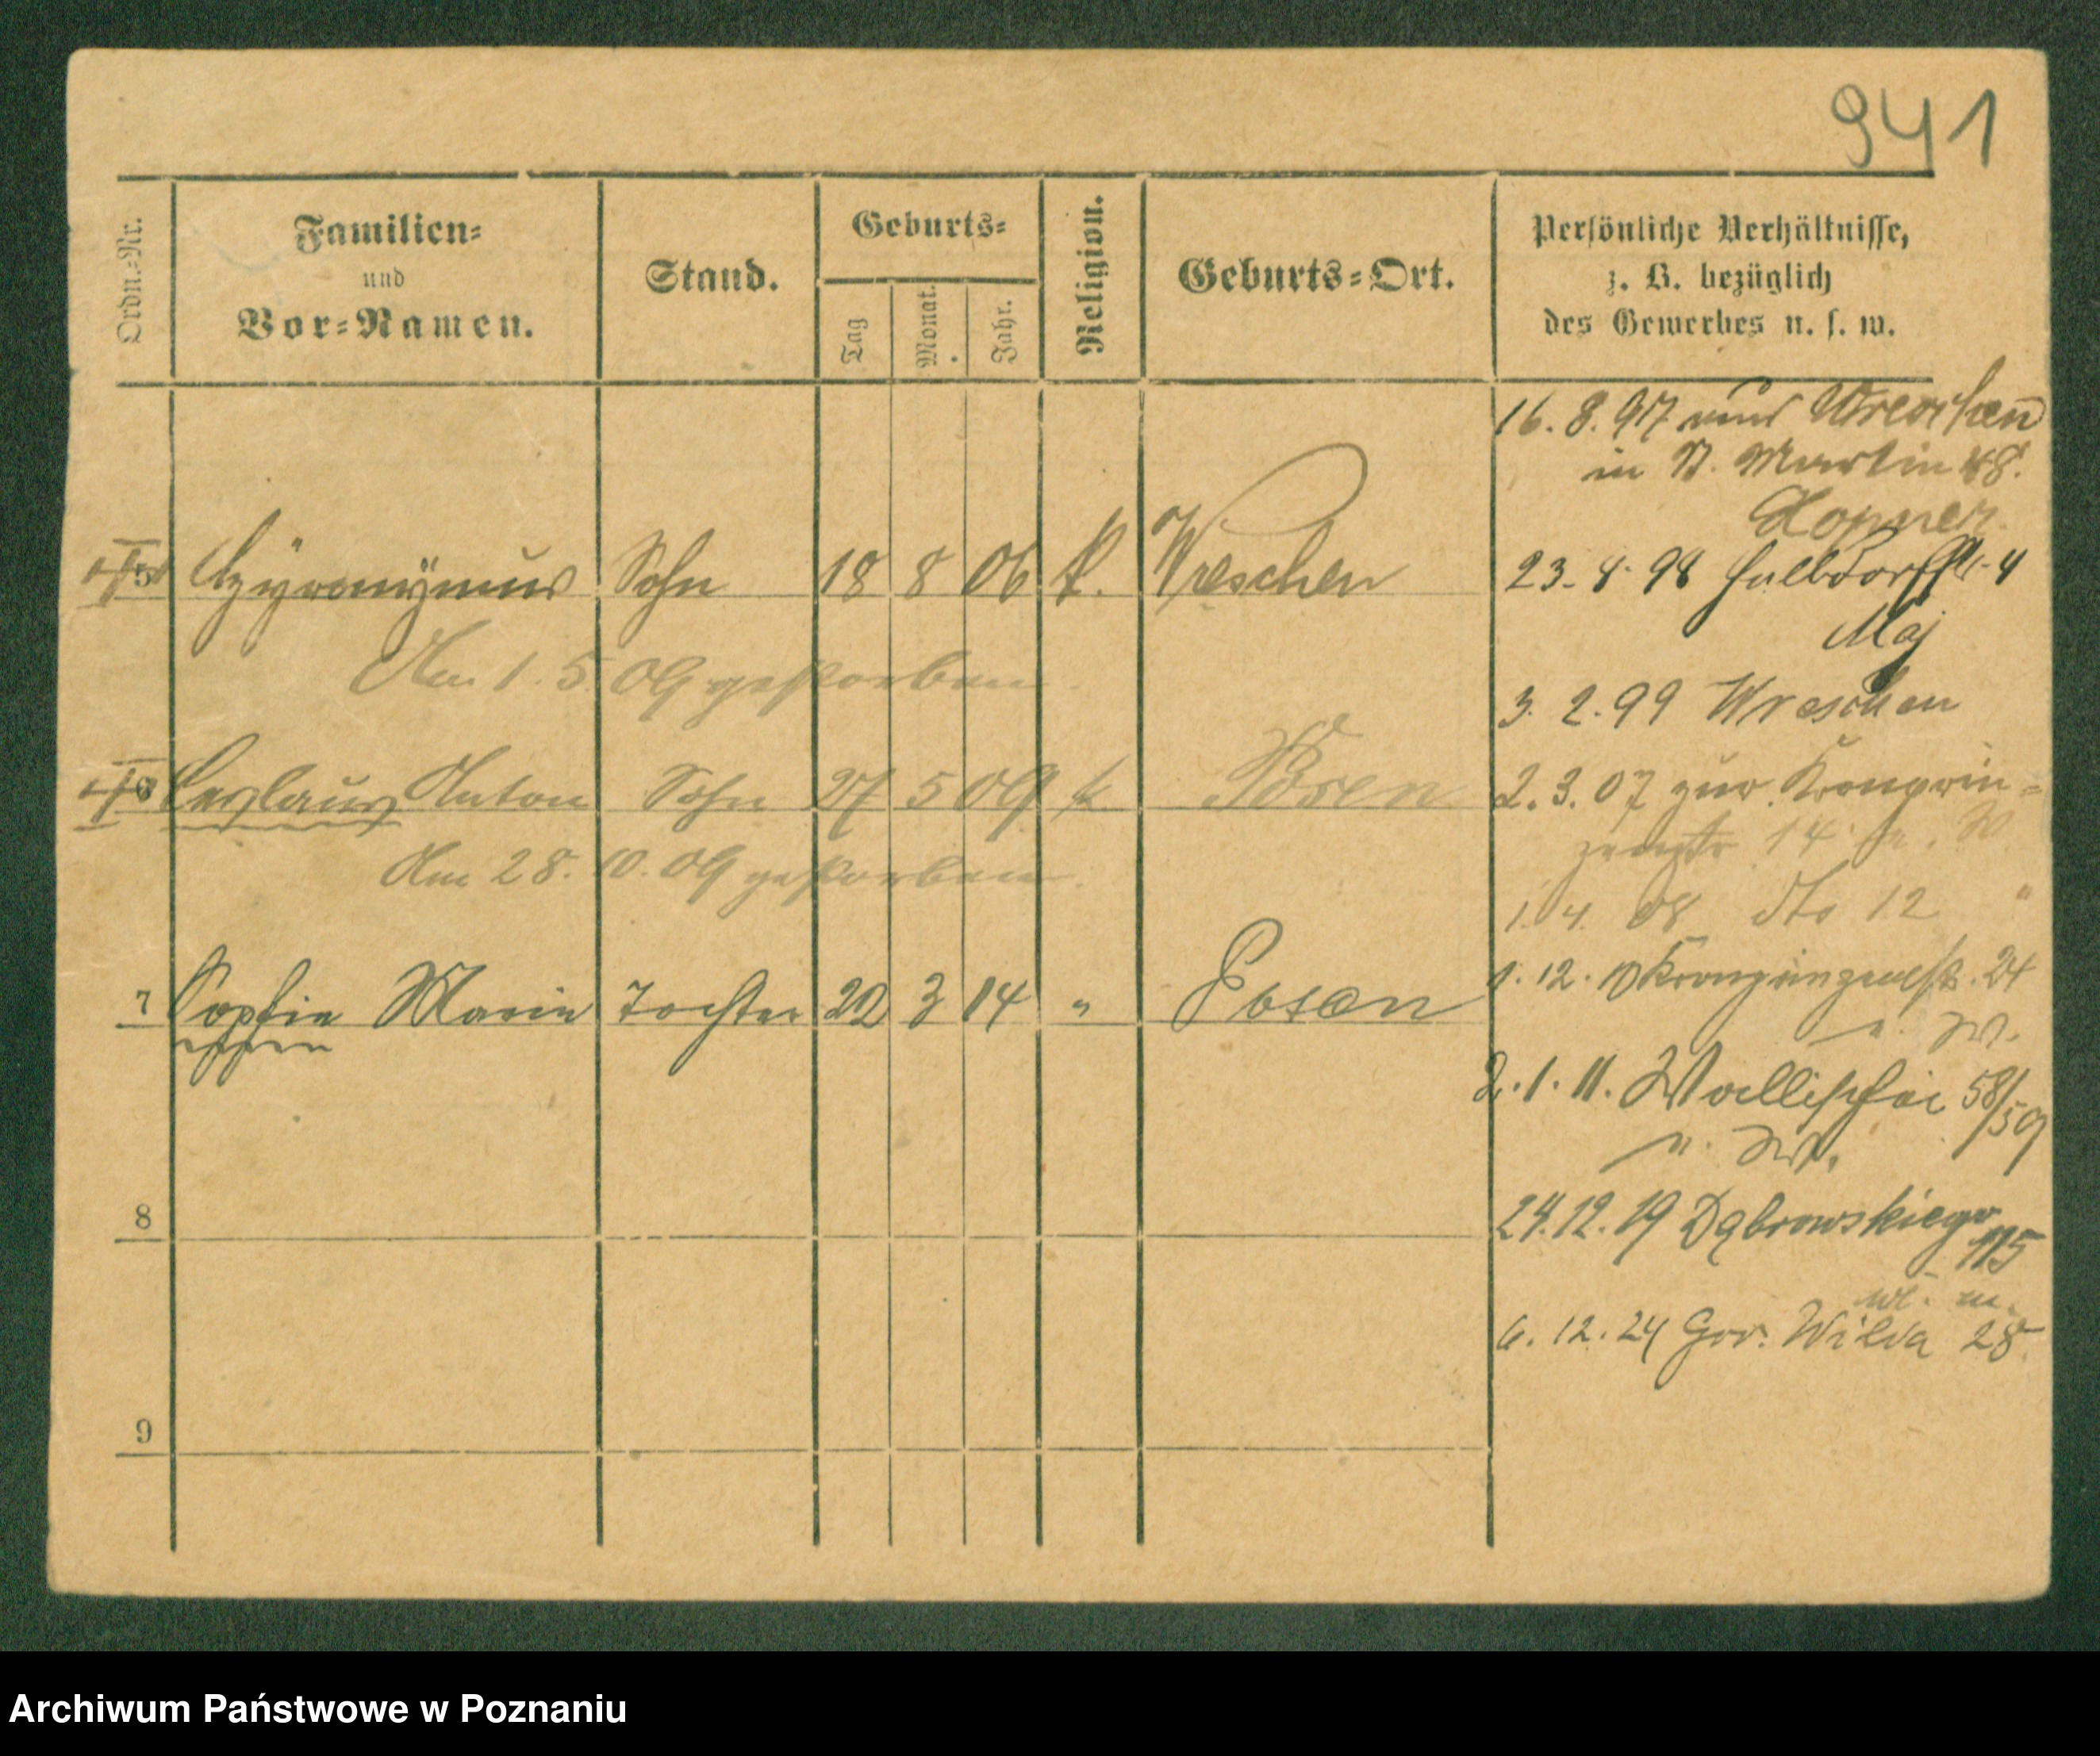 941
Ordn.-Nr.
Familien-
und
Vor-Namen.
Stand.
Geburts-
Tag
Monat.
Jahr.
Religion.
Geburts-Ort.
Persönliche Verhältnisse,
z. B. bezüglich
des Gewerbes u. s. w.
16. 8. 97 Wreschen
in St. Martin 48.
5 Sohn 18 8 06 k. Wreschen
23. 4. 98 Halldorfstr. 4
Am 1. 5. 09 gestorben
Maj
3. 2. 99 Wreschen
6 Ceslaus Anton Sohn 27 5 09 k Posen
2. 3. 07 zur Kronprin-
zenstr 14
Am 28. 10. 09 gestorben.
1. 4. 08 dto 12 "
7 Sophie Marie Tochter 20 3 14 " Posen
1. 12. 10 Kronprinzenstr. 24
2. 1. 11. Wallischei 58/59
8
24.12.19 Dąbrowskiego
115
6. 12. 24 Gór. Wilda 28
9
Archiwum Państwowe w Poznaniu